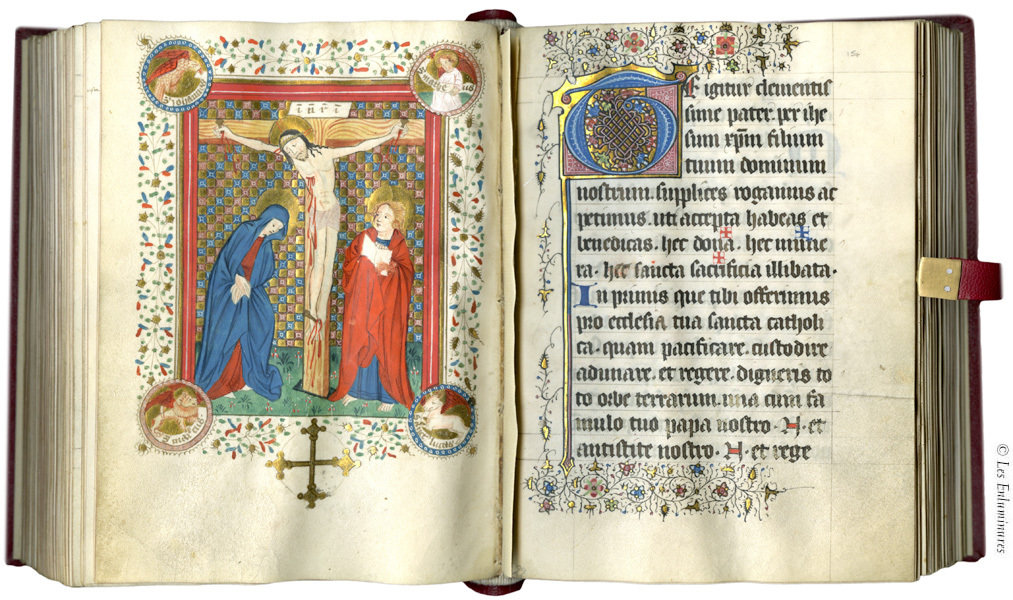 i n r i
154
Te igitur clementis
sime pater. per ihe
sum xp̅m filium
tuum dominum
nostrum. supplices rogamus ac
petimus. uti accepta habeas et
benedicas. hec dona. hec mune
ra. hec sancta sacrificia illibata.
In primis que tibi offerimus
pro ecclesia tua sancta catholi
ca. quam pacificare. custodire
adunare. et regere. digneris to
to orbe terrarum. una cum fa
mulo tuo papa nostro. N. et
antistite nostro. N. et rege
© Les Enluminures